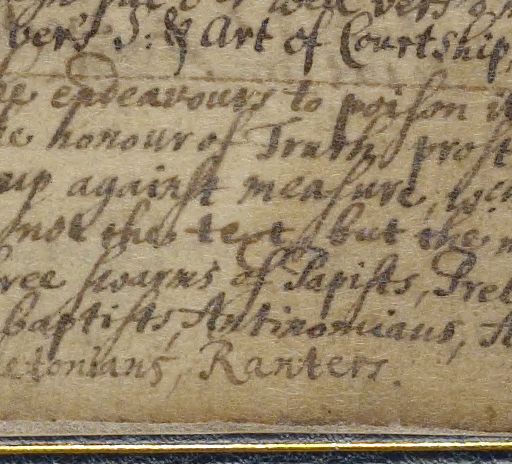 ber's S: & Art of Courtship,
endeavours to poison it
honour of Truth, prost
up against measure, wch
not the text, but the m
ree swarms of Papists, Prel
baptists, Antinomians, A
etonians, Ranters.